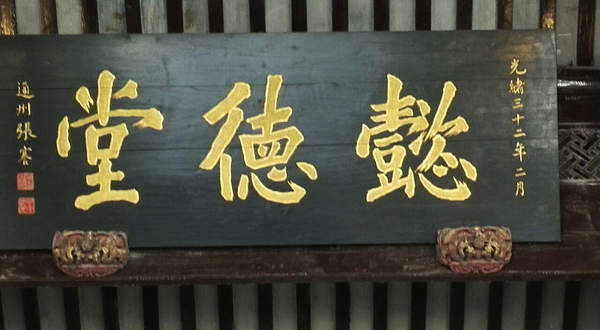 光緒三十二年二月
懿德堂
通州張謇